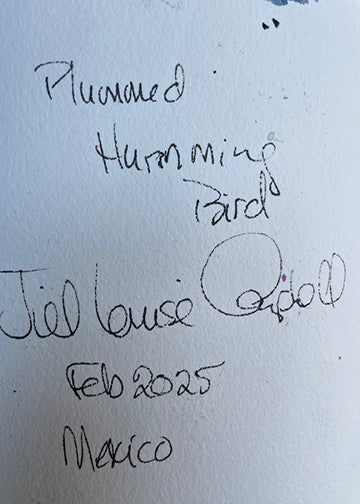 Plummed
Humming
Bird
Jill Louise
Feb 2025
Mexico